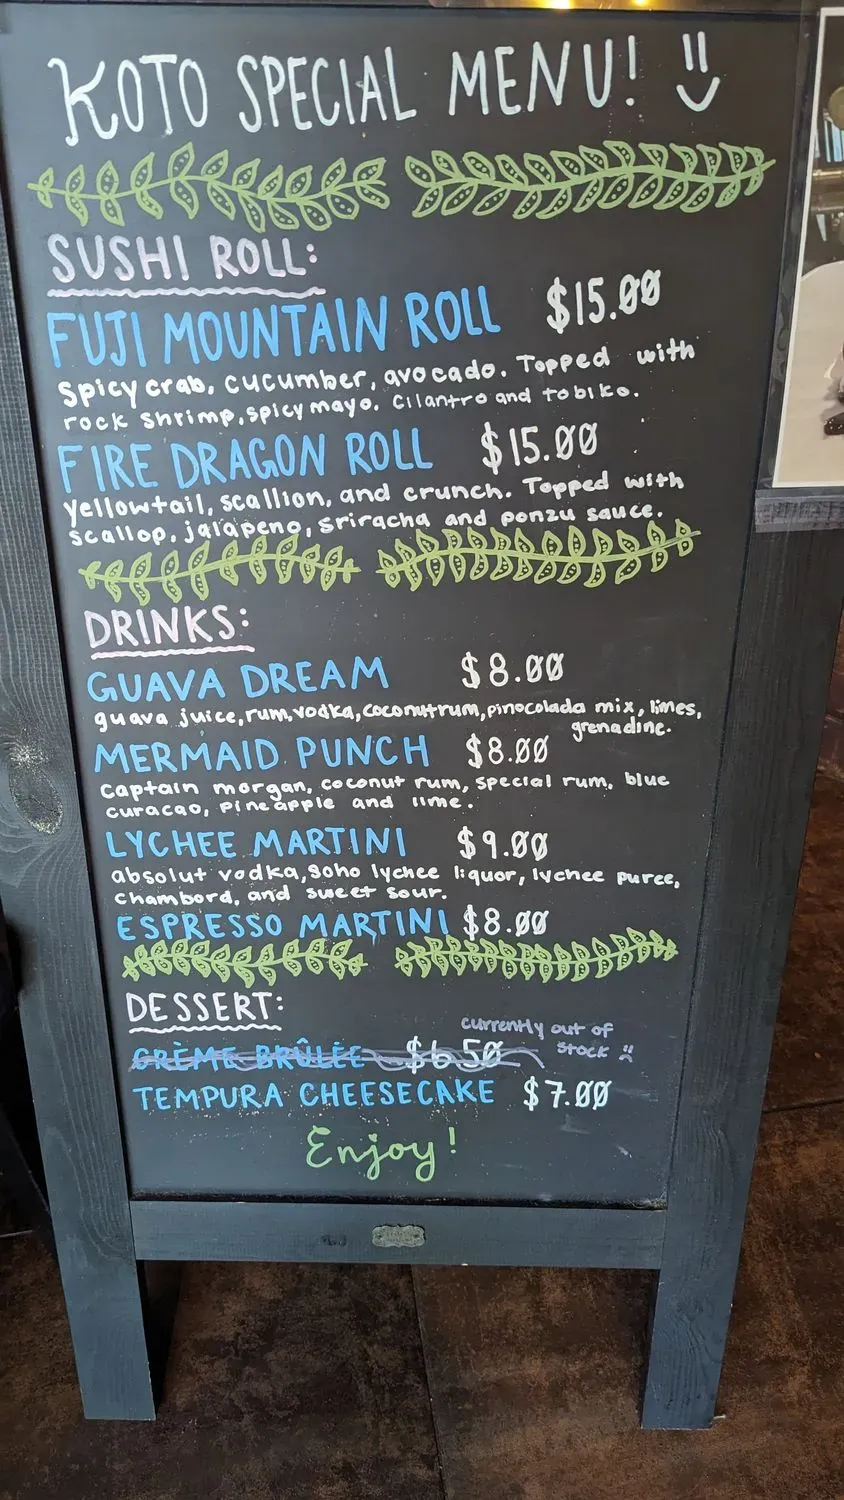 KOTO SPECIAL MENU!
SUSHI ROLL:
FUJI MOUNTAIN ROLL $15.00
spicy crab, cucumber, avocado. Topped with
rock shrimp, spicy mayo. Cilantro and tobiko.
FIRE DRAGON ROLL $15.00
yellowtail, scallion, and crunch. Topped with
scallop, jalapeno, sriracha and ponzu sauce.
DRINKS:
GUAVA DREAM $8.00
guava juice, rum, vodka, coconut rum, pinocolada mix, limes,
grenadine.
MERMAID PUNCH $8.00
captain morgan, coconut rum, special rum, blue
curacao, pineapple and lime.
LYCHEE MARTINI $9.00
absolut vodka, soho lychee liquor, lychee puree,
chambord, and sweet sour.
ESPRESSO MARTINI $8.00
DESSERT:
currently out of
stock
CRÈME BRÛLÉE $6.50
TEMPURA CHEESECAKE $7.00
Enjoy!